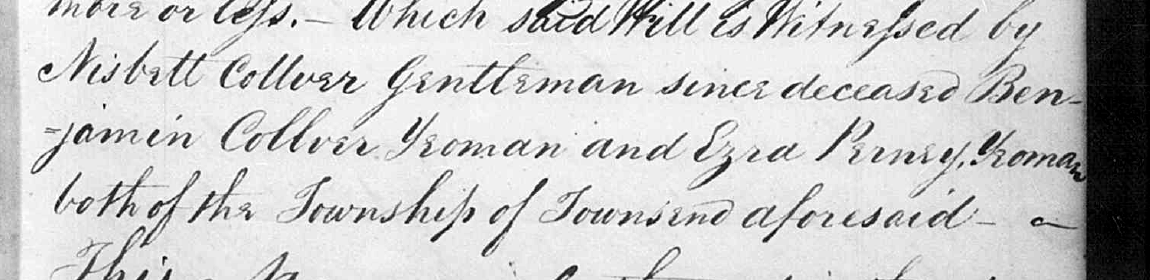 more or less. – Which said Will is Witnessed by
Nisbett Collver Gentleman since deceased Ben-
-jamin Collver Yeoman and Ezra Perney, Yeoman
both of the Township of Townsend aforesaid –
This